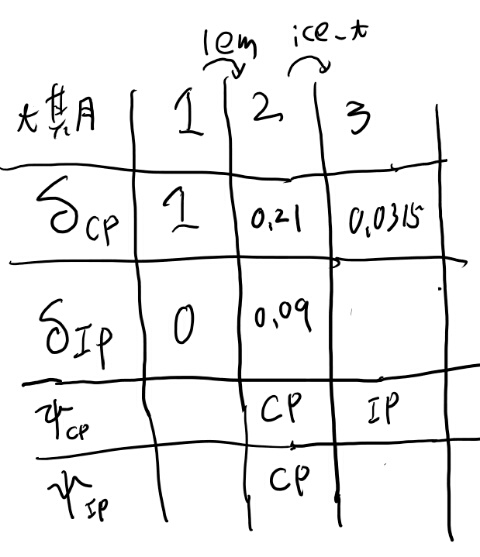 lem ice_t
t 其月 1 2 3
δCP 1 0.21 0.0315
δIP 0 0.09
ψCP CP IP
ψIP CP